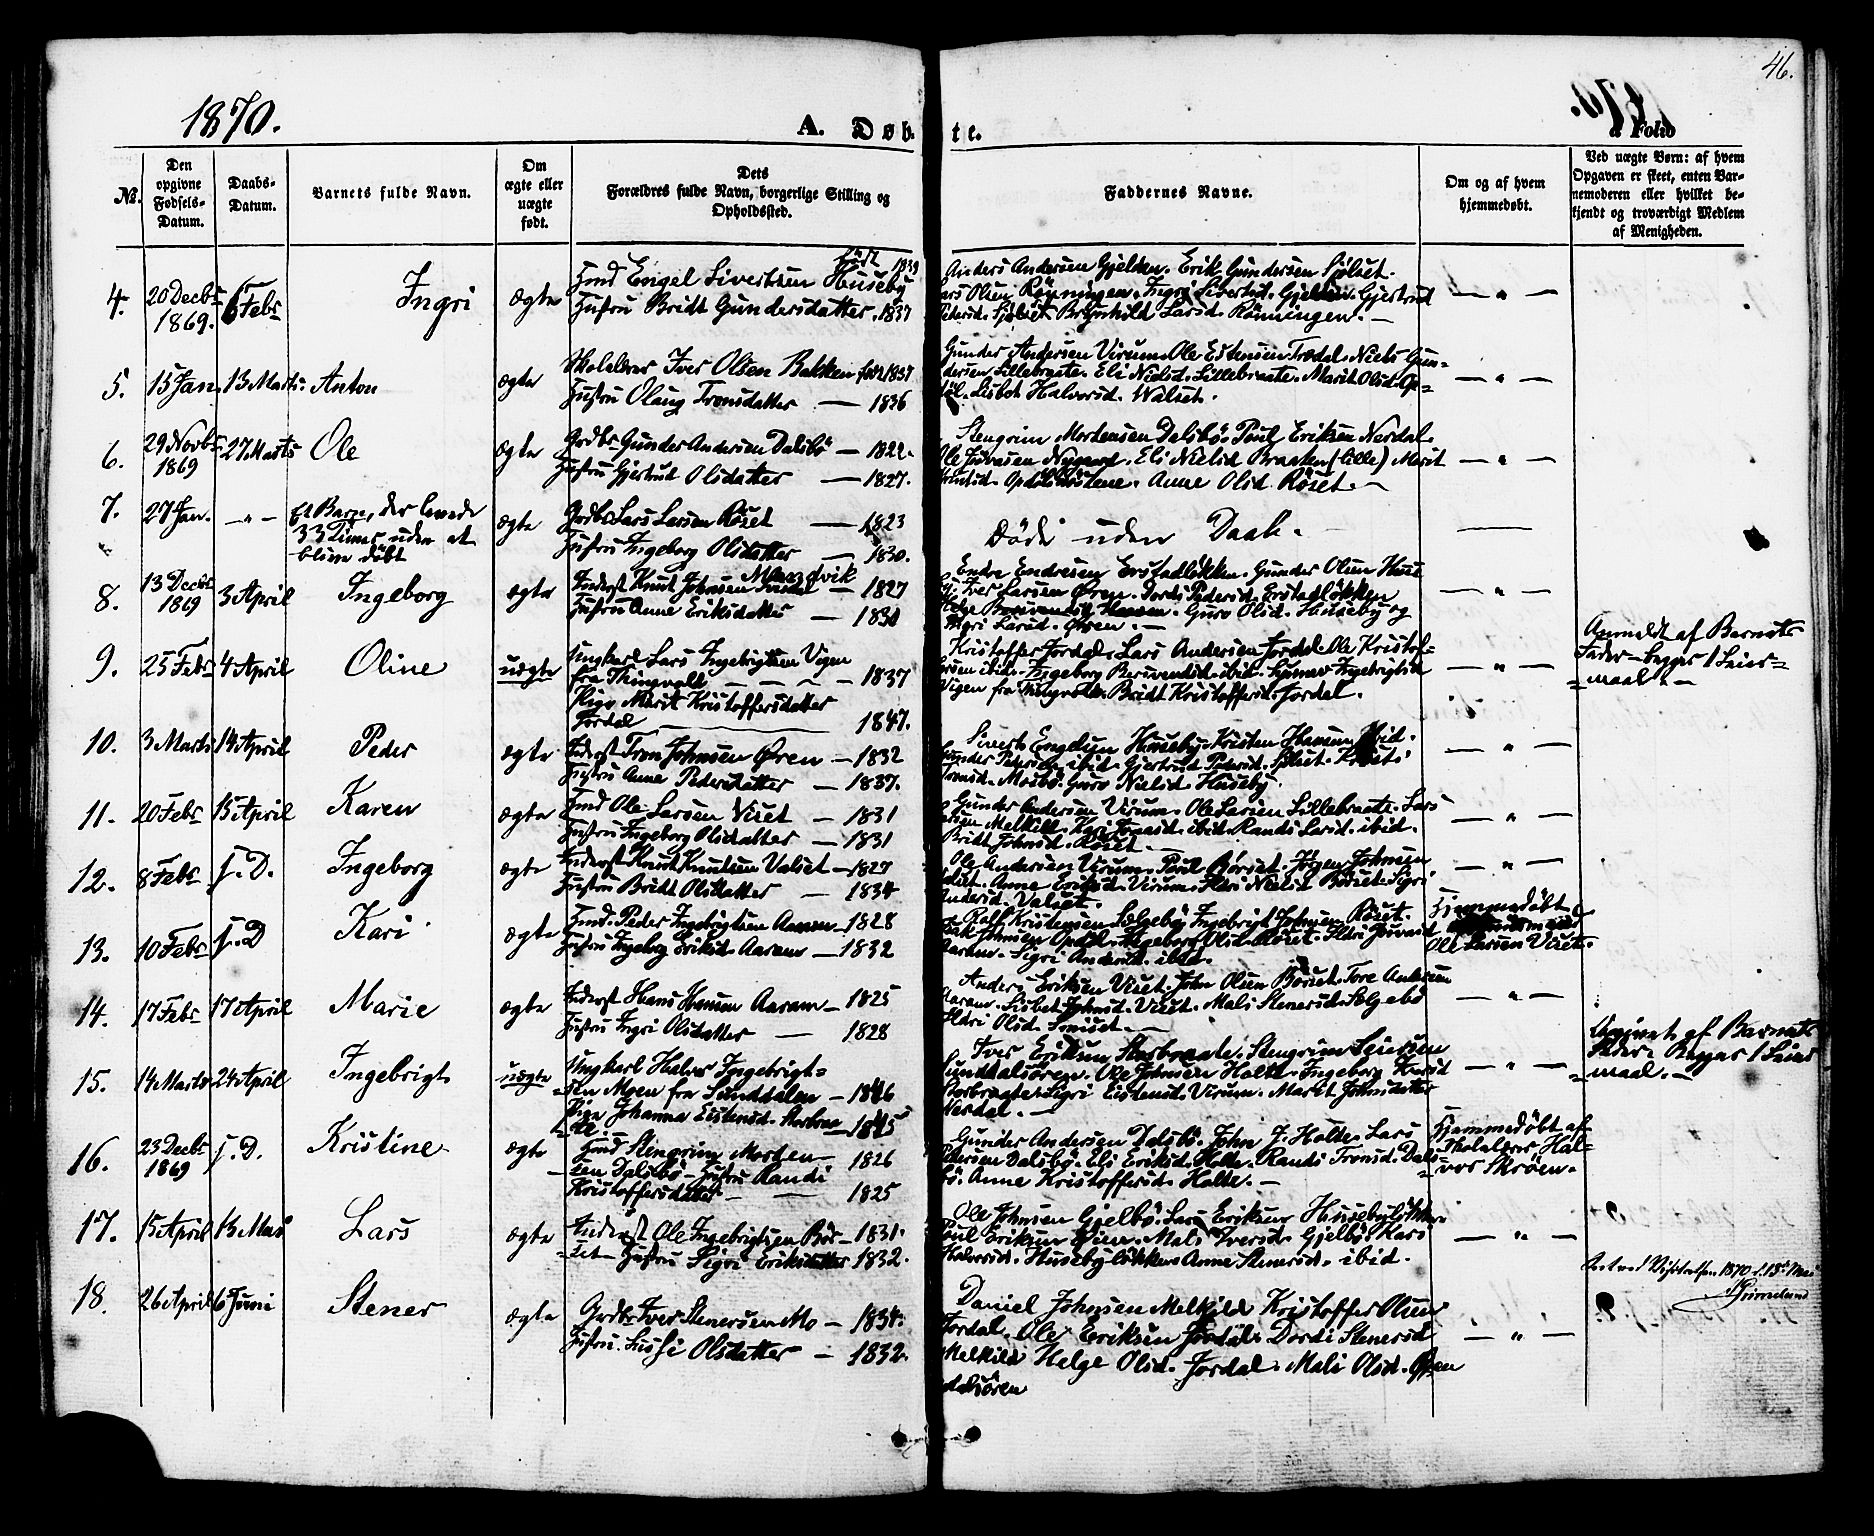 46.
1870.
A. Døbte.
a Folio
No.
Den opgivne Fødsels-Datum.
Daabs-Datum.
Barnets fulde Navn.
Om ægte eller uægte født.
Dets Forældres fulde Navn, borgerlige Stilling og Opholdssted.
Faddernes Navne.
Om og af hvem hjemmedøbt.
Ved uægte Børn: af hvem Opgaven er skeet, enten Barnemoderen eller hvilket bekjendt og troværdigt Medlem af Menigheden.
4. 20 Decbr 1869. 6 Febr Ingri ægte
Hmd Engel Sivertsen Huseby født 1839
Hustru Bridt Gundersdatter. 1837
Anders Andersen Gjelden. Erik Gundersen Sjølset.
Lars Olsen Rønningen. Ingri Sivertsd. Gjelden. Gjertrud
Pedersd. Sjølset Brynhild Larsd. Rønningen. —
— " —
5. 15 Jan. 13 Marts. Anton ægte
Skolelærer Iver Olsen Bakken født 1837
Hustru Olaug Tronsdatter — 1836
Gunder Andersen Virum. Ole Estensen Trædal. Niels Gun-
dersen Lillebraate. Eli Nielsd. Lillebraate. Marit Olsd. Op-
døl. Lisbet Halvorsd. Walset.
— " —
6. 29 Novbr 1869 27 Marts Ole ægte
Grdbr Gunder Andersen Dalsbø — 1822.
Hustru Gjertrud Olsdatter — 1827.
Stengrim Mortensen Dalsbø. Poul Eriksen Nerdal.
Eli Nielsd Braaten (lille) Marit
Anne Olsd. Røset. —
— " —
7. 27 Jan. — " — Et Barn, der levede
33 Timer uden at
blive døbt
ægte
Grdbr Lars Larsen Røset — 1823
Hustru Ingeborg Olsdatter — 1830.
Døde uden Daab.
8. 13 Decbr 1869 3 April Ingeborg ægte
Inderst Knut Johnsen — 1827
Hustru Anne Eriksdatter — 1831
Endre Endresen Erstadløkken. Gunder Olsen Huse
by. Iver Larsen Øren. Dordi Pedersd. Erstadløkken
Guro Olsd. Huseby og
Ingri Larsd. Øren. —
— " —
9. 25 Febr 4 April Oline uægte
Ungkarl Lars Ingebrigtsen Vigen
fra Thingvold — 1837
Pige Marit Kristoffersdatter
Jordal — 1847.
Kristoffer Jordal. Lars Andersen Jordal. Ole Kristof-
fersen ibid. Ingeborg ibid.
Vigen fra Thingvold. Bridt Kristoffersd. Jordal.
— " —
Anmeldt af Barnets
Fader — begges 1 Leier-
maal. —
10. 3 Marts 14 April Peder ægte
Inderst Tron Johnsen Øren — 1832
Hustru Anne Pedersdatter — 1837.
Sivert Engelsen Huseby. Kristen Hansen ibid.
Gunder Pedersen ibid. Gjertrud Pedersd. Sjølset.
Tronsd. Mosbø. Guro Nielsd. Huseby.
— " —
11. 20 Febr 15 April Karen ægte
Hmd Ole Larsen Viset — 1831
Hustru Ingeborg Olsdatter — 1831
Gunder Andersen Virum. Ole Larsen Lillebraate. Lars
Olsen Melkild. Kari Jonasd. ibid. Randi Larsd. ibid.
Bridt Johnsd. Røset. —
— " —
12. 8 Febr s. D. Ingeborg ægte
Inderst Knut Knutsen Valset — 1827
Hustru Bridt Olsdatter — 1834
Ole Andersen Virum. Poul Børset. Jørgen Johnsen
Valset. Anne Eriksd. Virum. Ildri Nielsd Børset. Sigri
Andersd. Valset.
— " —
13. 10 Febr s. D Kari ægte
Hmd. Peder Ingebrigtsen Aaram — 1828
Hustru Ingeborg Eriksd. Aaram — 1832
Kristensen Selgebø. Ingebrigt Johnsen Røset.
Ingeborg Olsd. Røset. Ildri
Aaram. Sigri Andersd. ibid.
Hjemmedøbt
Ole Larsen Viset.
14. 17 Febr 17 April Marie ægte
Inderst Hans Hansen Aaram — 1825
Hustru Ingri Olsdatter — 1828
Anders Eriksen Viset. John Olsen Børset. Tore Andersen
Aaram. Lisbet Johnsd. Viset. Mali Stenersd. Selgebø
Ildri Olsd. —
— " —
15. 14 Marts 24 April Ingebrigt uægte
Ungkarl Halvor Ingebrigt-
sen Moen fra Sunddalen — 1846
Pige Johanne Eistensd. Storbraa-
te — 1845
Iver Eriksen Storbraate. Stengrim
Sunddalsøren. Ole Johnsen Holte. Ingeborg Knutsd
Storbraate. Sigri Eistensd. Virum. Marit Johnsdatter
Nerdal. —
— " —
Opgivet af Barnets
Fader. Begges 1 Leier
maal. —
16. 23 Decbr 1869 s. D. Kristine ægte
Hmd Stengrim Morten-
sen Dalsbø — 1826
Hustru Randi
Kristoffersdatter — 1825
Gunder Andersen Dalsbø. John J. Holte. Lars
Pedersen Dalsbø. Eli Eriksd. Holte. Randi Tronsd. Dals-
bø. Anne Kristoffersd. Holte. —
Hjemmedøbt af
Skolelærer Hal-
vor Skrøen.
17. 15 April 15 Mai Lars ægte
Inderst Ole Ingebrigtsen Bør- — 1831.
set. Hustru Sigri Eriksdatter 1832.
Ole Johnsen Gjelbø. Lars Eriksen Husebyløkken
Poul Eriksen Øien. Mali Iversd. Gjelbø. Kari
Halvorsd. Husebyløkken. Anne Stenersd. ibid.
— " —
18. 26 April 6 Juni Stener ægte
Grdbr. Iver Stenersen Mo — 1834.
Hustru. Lussi Olsdatter — 1832.
Daniel Johnsen Melkild. Kristoffer Olsen
Jordal. Ole Eriksen Jordal. Dordi Stenersd
Melkild Helge Olsd. Jordal. Mali Olsd.
— " —
1870 d. 15de Mai